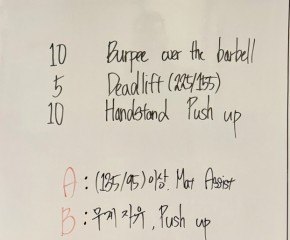 10 Burpee over the barbell
5 Deadlift (225/155)
10 Handstand Push up
A : (135/95) 이상, Mat Assist
B : 무게 자유, Push up